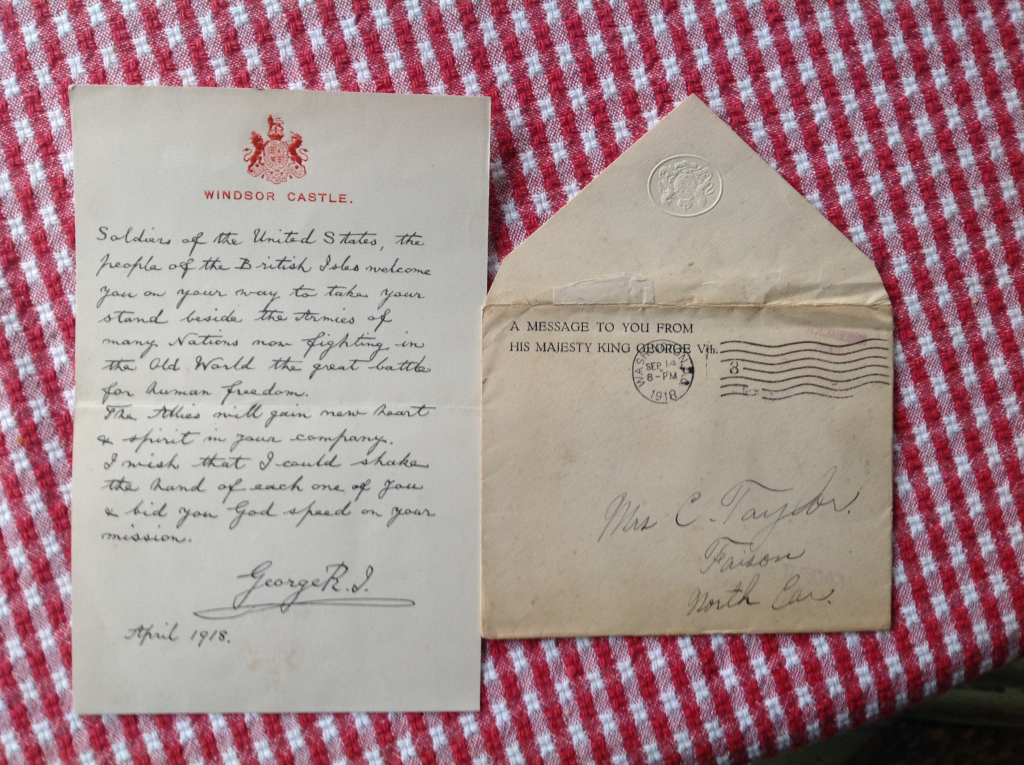 WINDSOR CASTLE.
Soldiers of the United States, the
people of the British Isles welcome
you on your way to take your
stand beside the Armies of
many Nations now fighting in
the Old World the great battle
for human freedom.
The Allies will gain new heart
& spirit in your company.
I wish that I could shake
the hand of each one of you
& bid you God speed on your
mission.
George R.I.
April 1918.
A MESSAGE TO YOU FROM
HIS MAJESTY KING GEORGE Vth.
SEP 14
8-PM
1918
3
Mrs C. Taylor.
Faison
North Car.